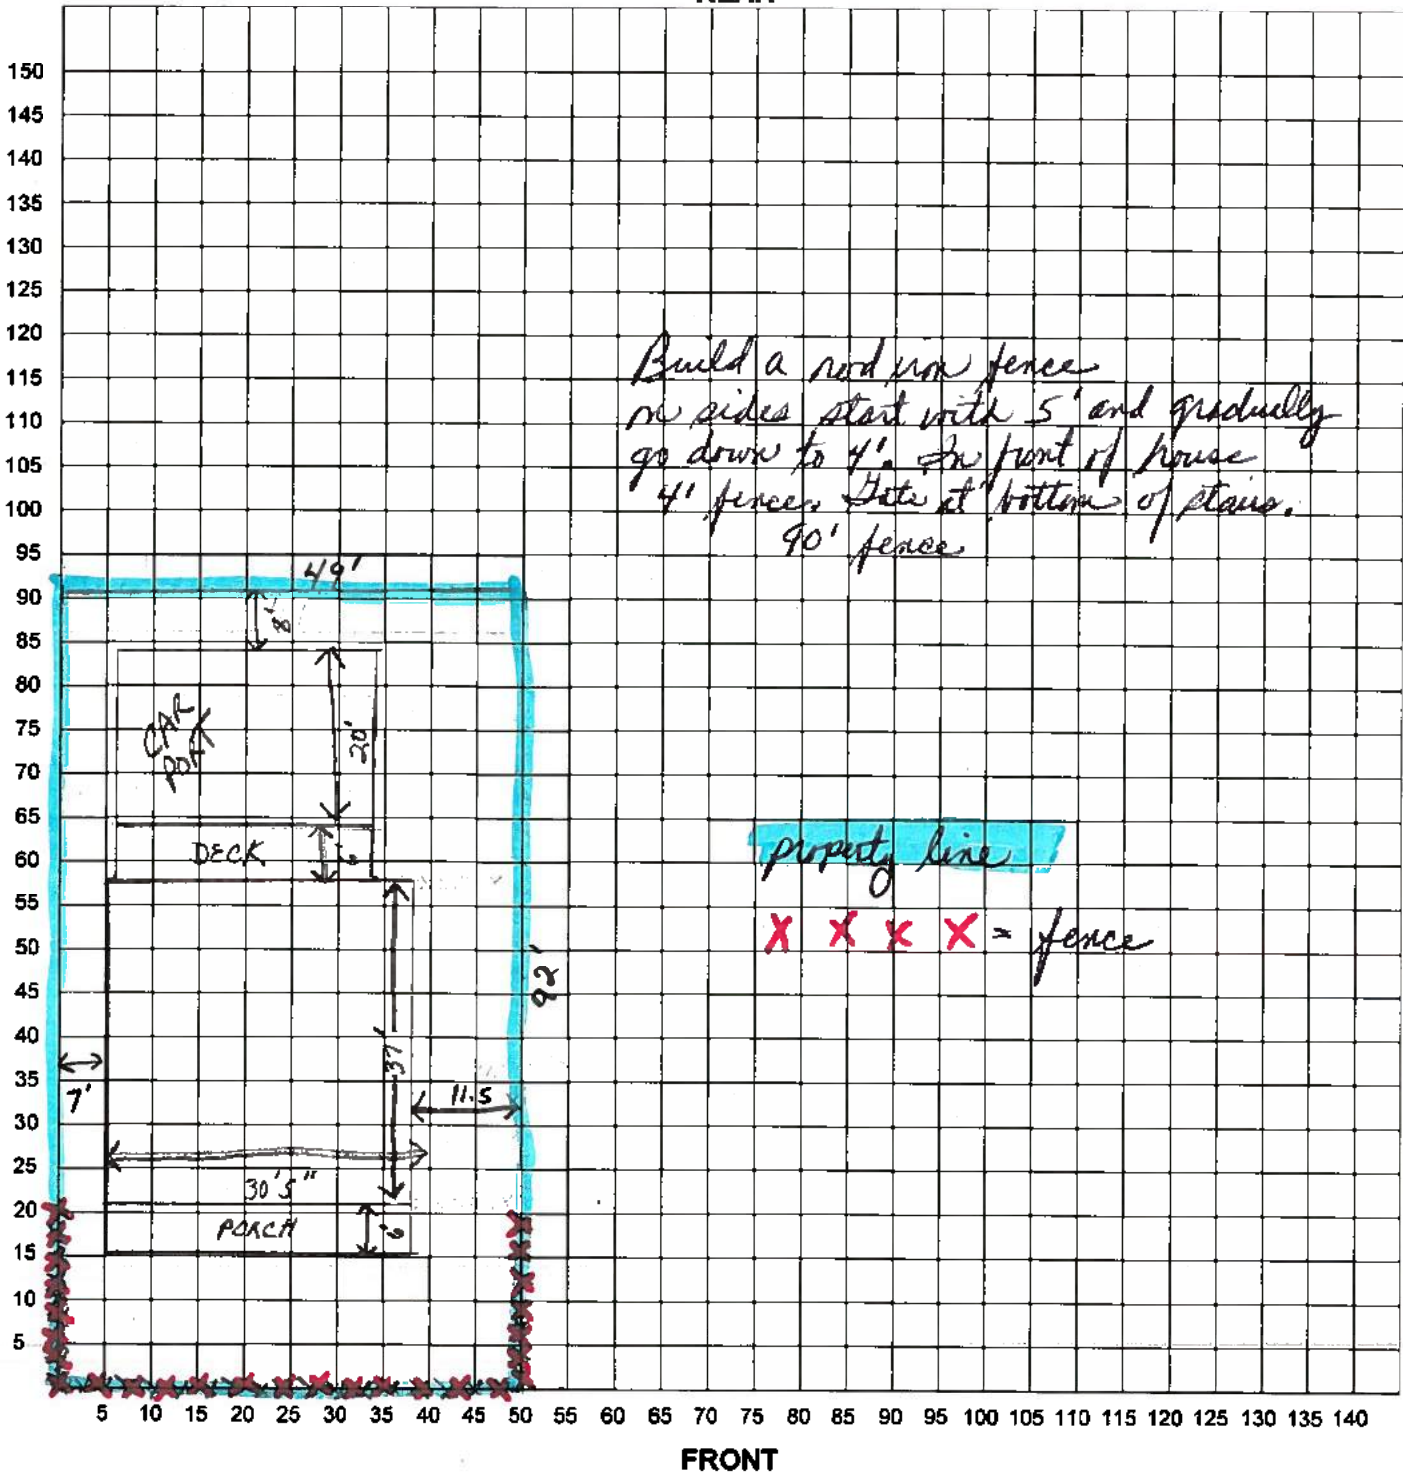 150
145
140
135
130
125
120
115
110
105
100
95
90
85
80
75
70
65
60
55
50
45
40
35
30
25
20
15
10
5
Build a rod iron fence
on sides start with 5' and gradually
go down to 4'. In front of house
4' fence. Gate at bottom of stairs.
90' fence
49'
8'
CAR
PORT
20'
DECK
6'
property line
X X X X = fence
92'
37'
7'
11.5
30'5"
PORCH
6'
5 10 15 20 25 30 35 40 45 50 55 60 65 70 75 80 85 90 95 100 105 110 115 120 125 130 135 140
FRONT